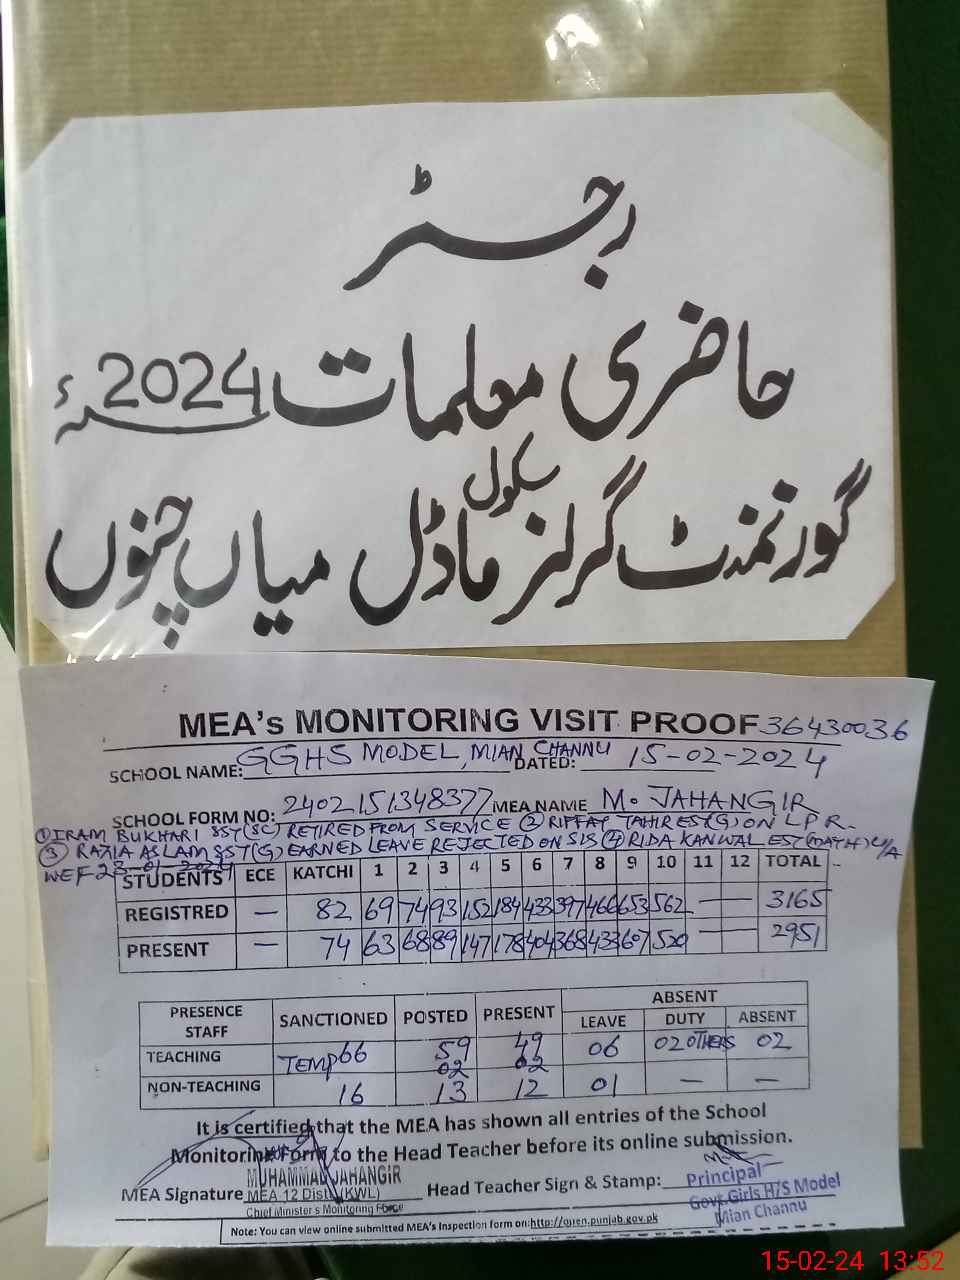 رجسٹر
حاضری معلمات 2024ء
گورنمنٹ گرلز ماڈل سکول میاں چنوں
MEA's MONITORING VISIT PROOF 36430036
SCHOOL NAME: GGHS MODEL, MIAN CHANNU DATED: 15-02-2024
SCHOOL FORM NO: 2402151348377 MEA NAME M. JAHANGIR
① IRAM BUKHARI SST(SC) RETIRED FROM SERVICE ② RIFFAT TAHIR EST(G) ON LPR.
③ RAZIA ASLAM SST(G) EARNED LEAVE REJECTED ON SIS ④ RIDA KANWAL EST(MATH) U/A
WEF 23-01-2024
STUDENTS ECE KATCHI 1 2 3 4 5 6 7 8 9 10 11 12 TOTAL
REGISTRED — 82 69 74 93 152 184 433 397 466 653 562 — — 3165
PRESENT — 74 63 68 89 147 178 404 368 433 607 520 — — 2951
PRESENCE STAFF SANCTIONED POSTED PRESENT ABSENT
LEAVE DUTY ABSENT
TEACHING 66 59 49 06 02 OTHERS 02
TEMP 02 02
NON-TEACHING 16 13 12 01 — —
It is certified that the MEA has shown all entries of the School
Monitoring Form to the Head Teacher before its online submission.
MUHAMMAD JAHANGIR
MEA Signature MEA 12 Distt. (KWL) Head Teacher Sign & Stamp: Principal
Chief Minister's Monitoring Force Govt. Girls H/S Model
Mian Channu
Note: You can view online submitted MEA's Inspection form on:http://open.punjab.gov.pk
15-02-24 13:52